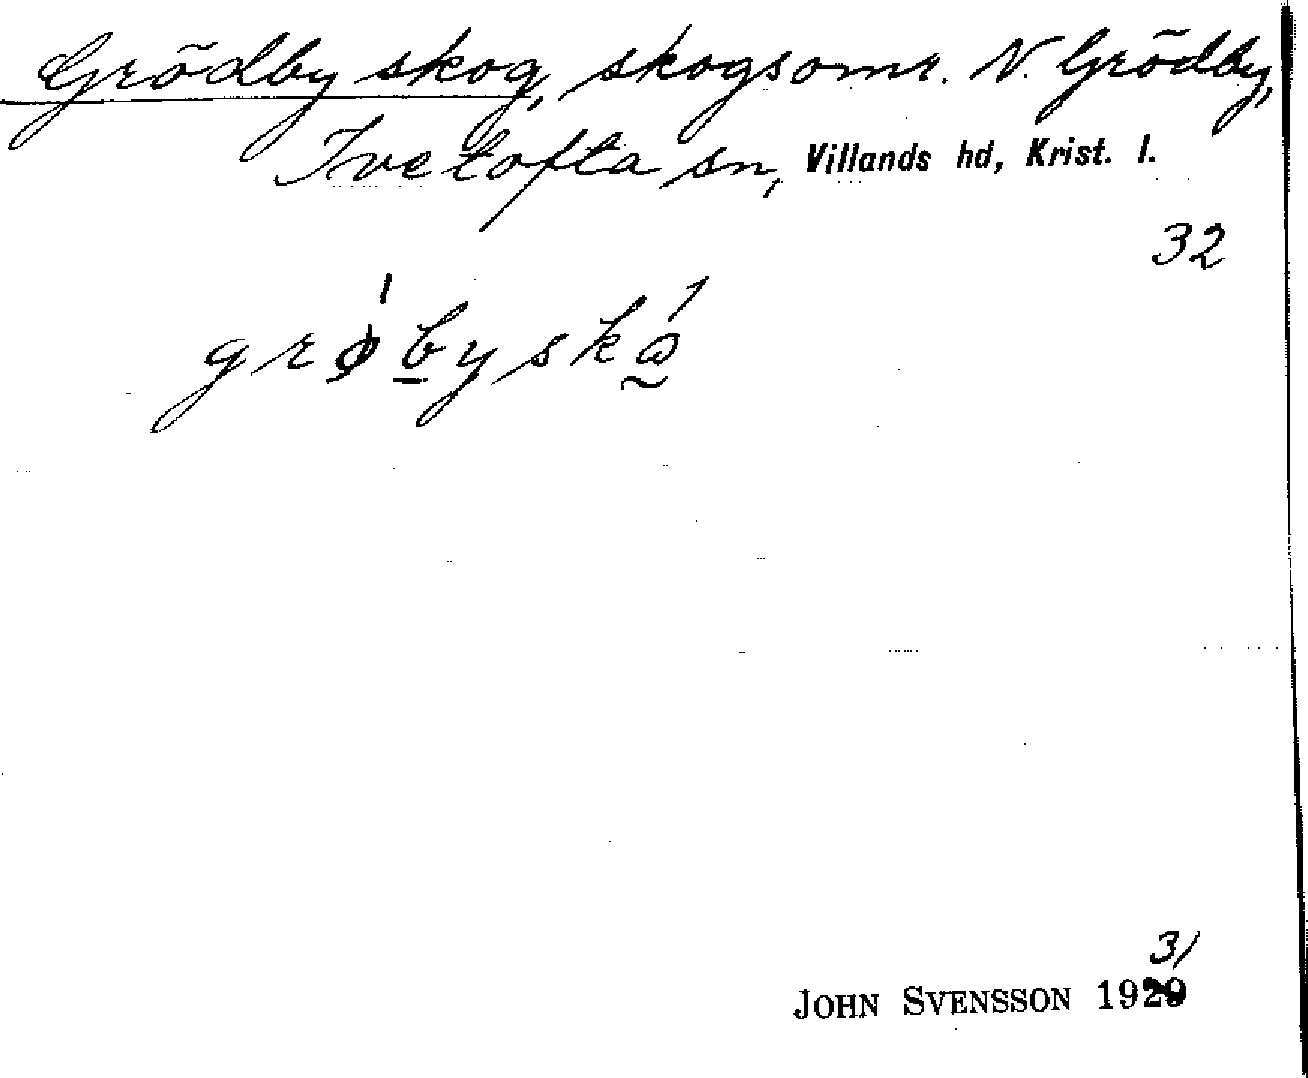 Grödby skog, skogsomr. N. Grödby,
Ivetofta sn, Villands hd, Krist. l.
32
JOHN SVENSSON 1929
31